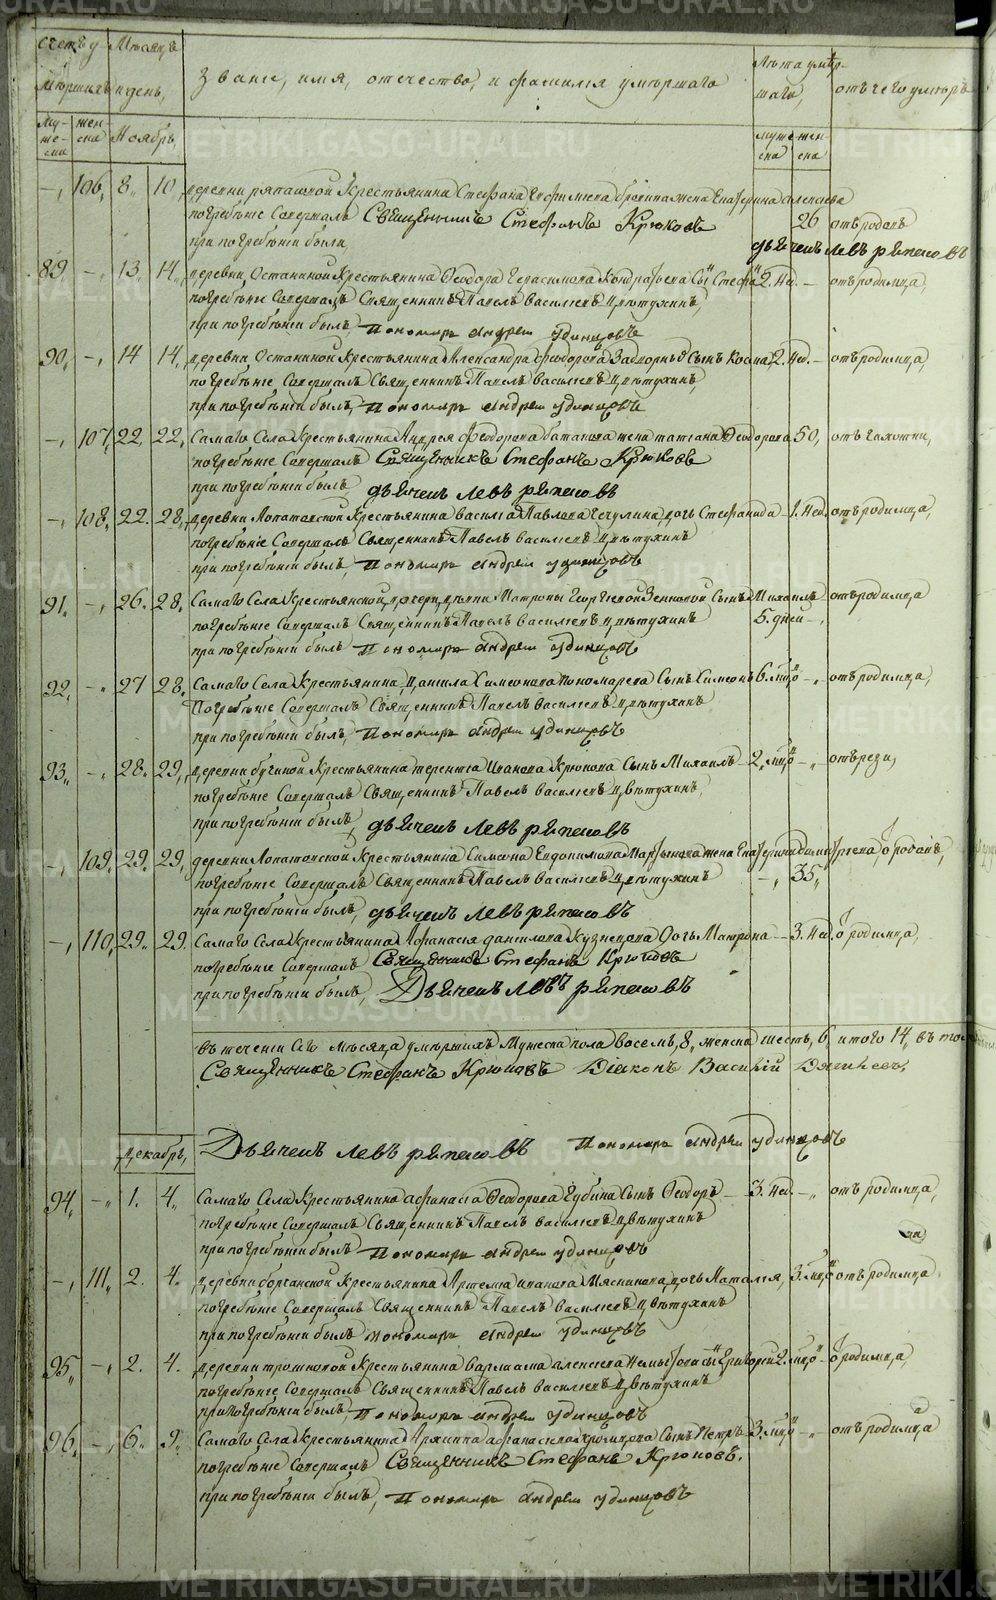 METRIKI.GASO-URAL.RU
Счетъ умершихъ Мѣсяцъ и день, Званіе, имя, отечество, и фамилія умершаго Лѣта умершаго, отъ чего умеръ
Мужеска женска Ноябрь, мужеска женска
-, 106, 8, 10, деревни Крестьянина Стефана жена Екатерина Алексеева
погребеніе Совершалъ Священникъ Стефанъ Крюковъ 26 отъ родовъ
при погребеніи были, дьячекъ Левъ
89. -, 13, 14, деревни Останиной Крестьянина Ѳеодора Герасимова Сынъ 2. Нед. - отъ родимца,
погребеніе Совершалъ Священникъ Павелъ Василіевъ Цвѣтухинъ,
при погребеніи былъ, Пономарь Андрей Удинцовъ
90, -, 14 14, деревни Останиной Крестьянина Александра Феодорова Сынъ Козма, 2. Нед. - отъ родимца,
погребеніе Совершалъ Священникъ Павелъ Василіевъ Цвѣтухинъ,
при погребеніи былъ, Пономарь Андрей Удинцовъ
-, 107, 22, 22, Самаго Села Крестьянина Андрея Феодорова жена татіана Ѳеодорова 50, отъ чахотки,
погребеніе Совершалъ Священникъ Стефанъ Крюковъ
при погребеніи былъ дьячекъ Левъ
-, 108, 22. 28, деревни Лопатовской Крестьянина Василія Павлова Чечулина дочь Стефанида - 1. Нед. отъ родимца,
погребеніе Совершалъ Священникъ Павелъ Василіевъ Цвѣтухинъ
при погребеніи былъ, Пономарь Андрей Удинцовъ
91. -, 26. 28. Самаго Села Крестьянской дѣвки Матроны Георгіевой Сынъ Михаилъ отъ родимца
погребеніе Совершалъ Священникъ Павелъ Василіевъ Цвѣтухинъ 5. дней -,
при погребеніи былъ Пономарь Андрей Удинцовъ
92. -, 27 28. Самаго Села Крестьянина Даніила Симеонова Пономарева Сынъ Симеонъ 6. мцъ - отъ родимца,
Погребеніе Совершалъ Священникъ Павелъ Василіевъ Цвѣтухинъ
при погребеніи былъ, Пономарь Андрей Удинцовъ
93, -, 28. 29, деревни Крестьянина терентія Иванова Крюкова Сынъ Михаилъ - 2, мцъ - отъ рези,
погребеніе Совершалъ Священникъ Павелъ Василіевъ Цвѣтухинъ,
при погребеніи былъ, дьячекъ Левъ
-, 109, 29. 29, деревни Лопатовской Крестьянина Симеона Евдокимова жена Екатерина ѿ родовъ,
погребеніе Совершалъ Священникъ Павелъ Василіевъ Цвѣтухинъ -, 35,
при погребеніи былъ, дьячекъ Левъ
-, 110, 29. 29. Самаго Села Крестьянина Афанасія Даніилова Кузнецова Дочь Матрона - 3. Нед. ѿ родимца,
погребеніе Совершалъ Священникъ Стефанъ Крюковъ
при погребеніи былъ, Дьячекъ Левъ
Въ теченіи сего мѣсяца умершихъ Мужеска пола восемь, 8, женска шесть, 6, итого 14,
Священникъ Стефанъ Крюковъ Діаконъ Василій
Декабрь, Дьячекъ Левъ Пономарь Андрей Удинцовъ
94, -, 1. 4, Самаго Села Крестьянина Афанасія Ѳеодорова Сынъ Ѳеодоръ - 3. Нед. -, отъ родимца,
погребеніе Совершалъ Священникъ Павелъ Василіевъ Цвѣтухинъ
при погребеніи былъ Пономарь Андрей Удинцовъ
-, 111, 2. 4. деревни Крестьянина Артемія Иванова Мясникова дочь Наталія, 3. мцъ отъ родимца
погребеніе Совершалъ Священникъ Павелъ Василіевъ Цвѣтухинъ
при погребеніи былъ пономарь Андрей Удинцовъ
95, -, 2. 4. деревни Крестьянина Варлаама Алексеева Сынъ Григорій 2. мцъ - ѿ родимца,
погребеніе Совершалъ Священникъ Павелъ Василіевъ Цвѣтухинъ
при погребеніи былъ, Пономарь Андрей Удинцовъ
96, -, 6. 9, Самаго Села Крестьянина Архиппа Сынъ Петръ - 3. мцъ -, отъ родимца
погребеніе Совершалъ Священникъ Стефанъ Крюковъ.
при погребеніи былъ, Пономарь Андрей Удинцовъ
METRIKI.GASO-URAL.RU